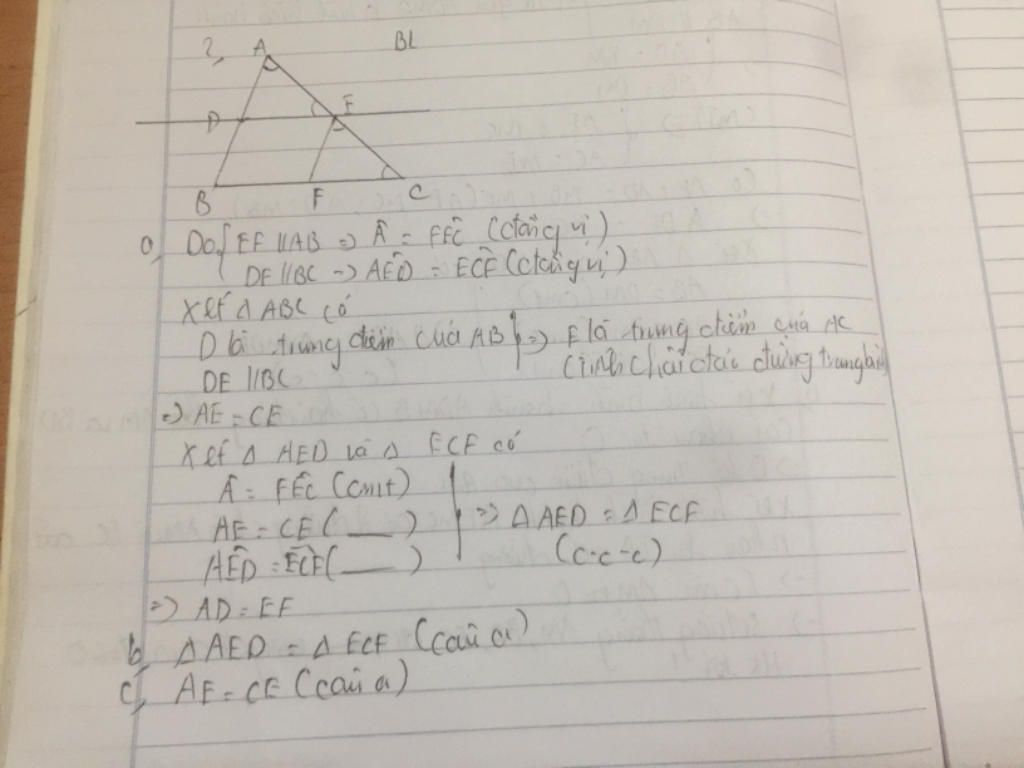 2, A BL
D E
B F C
a, Do { EF // AB => Â = FÊC (đồng vị)
DE // BC => AÊD = EĈF (đồng vị)
Xét Δ ABC có
D là trung điểm của AB => E là trung điểm của AC
DE // BC (tính chất đường trung bình)
=> AE = CE
Xét Δ AED và Δ ECF có
Â = FÊC (cmt)
AE = CE ( __ ) => Δ AED = Δ ECF
AÊD = EĈF ( __ ) (c-c-c)
=> AD = EF
b, Δ AED = Δ ECF (câu a)
c, AE = CE (câu a)